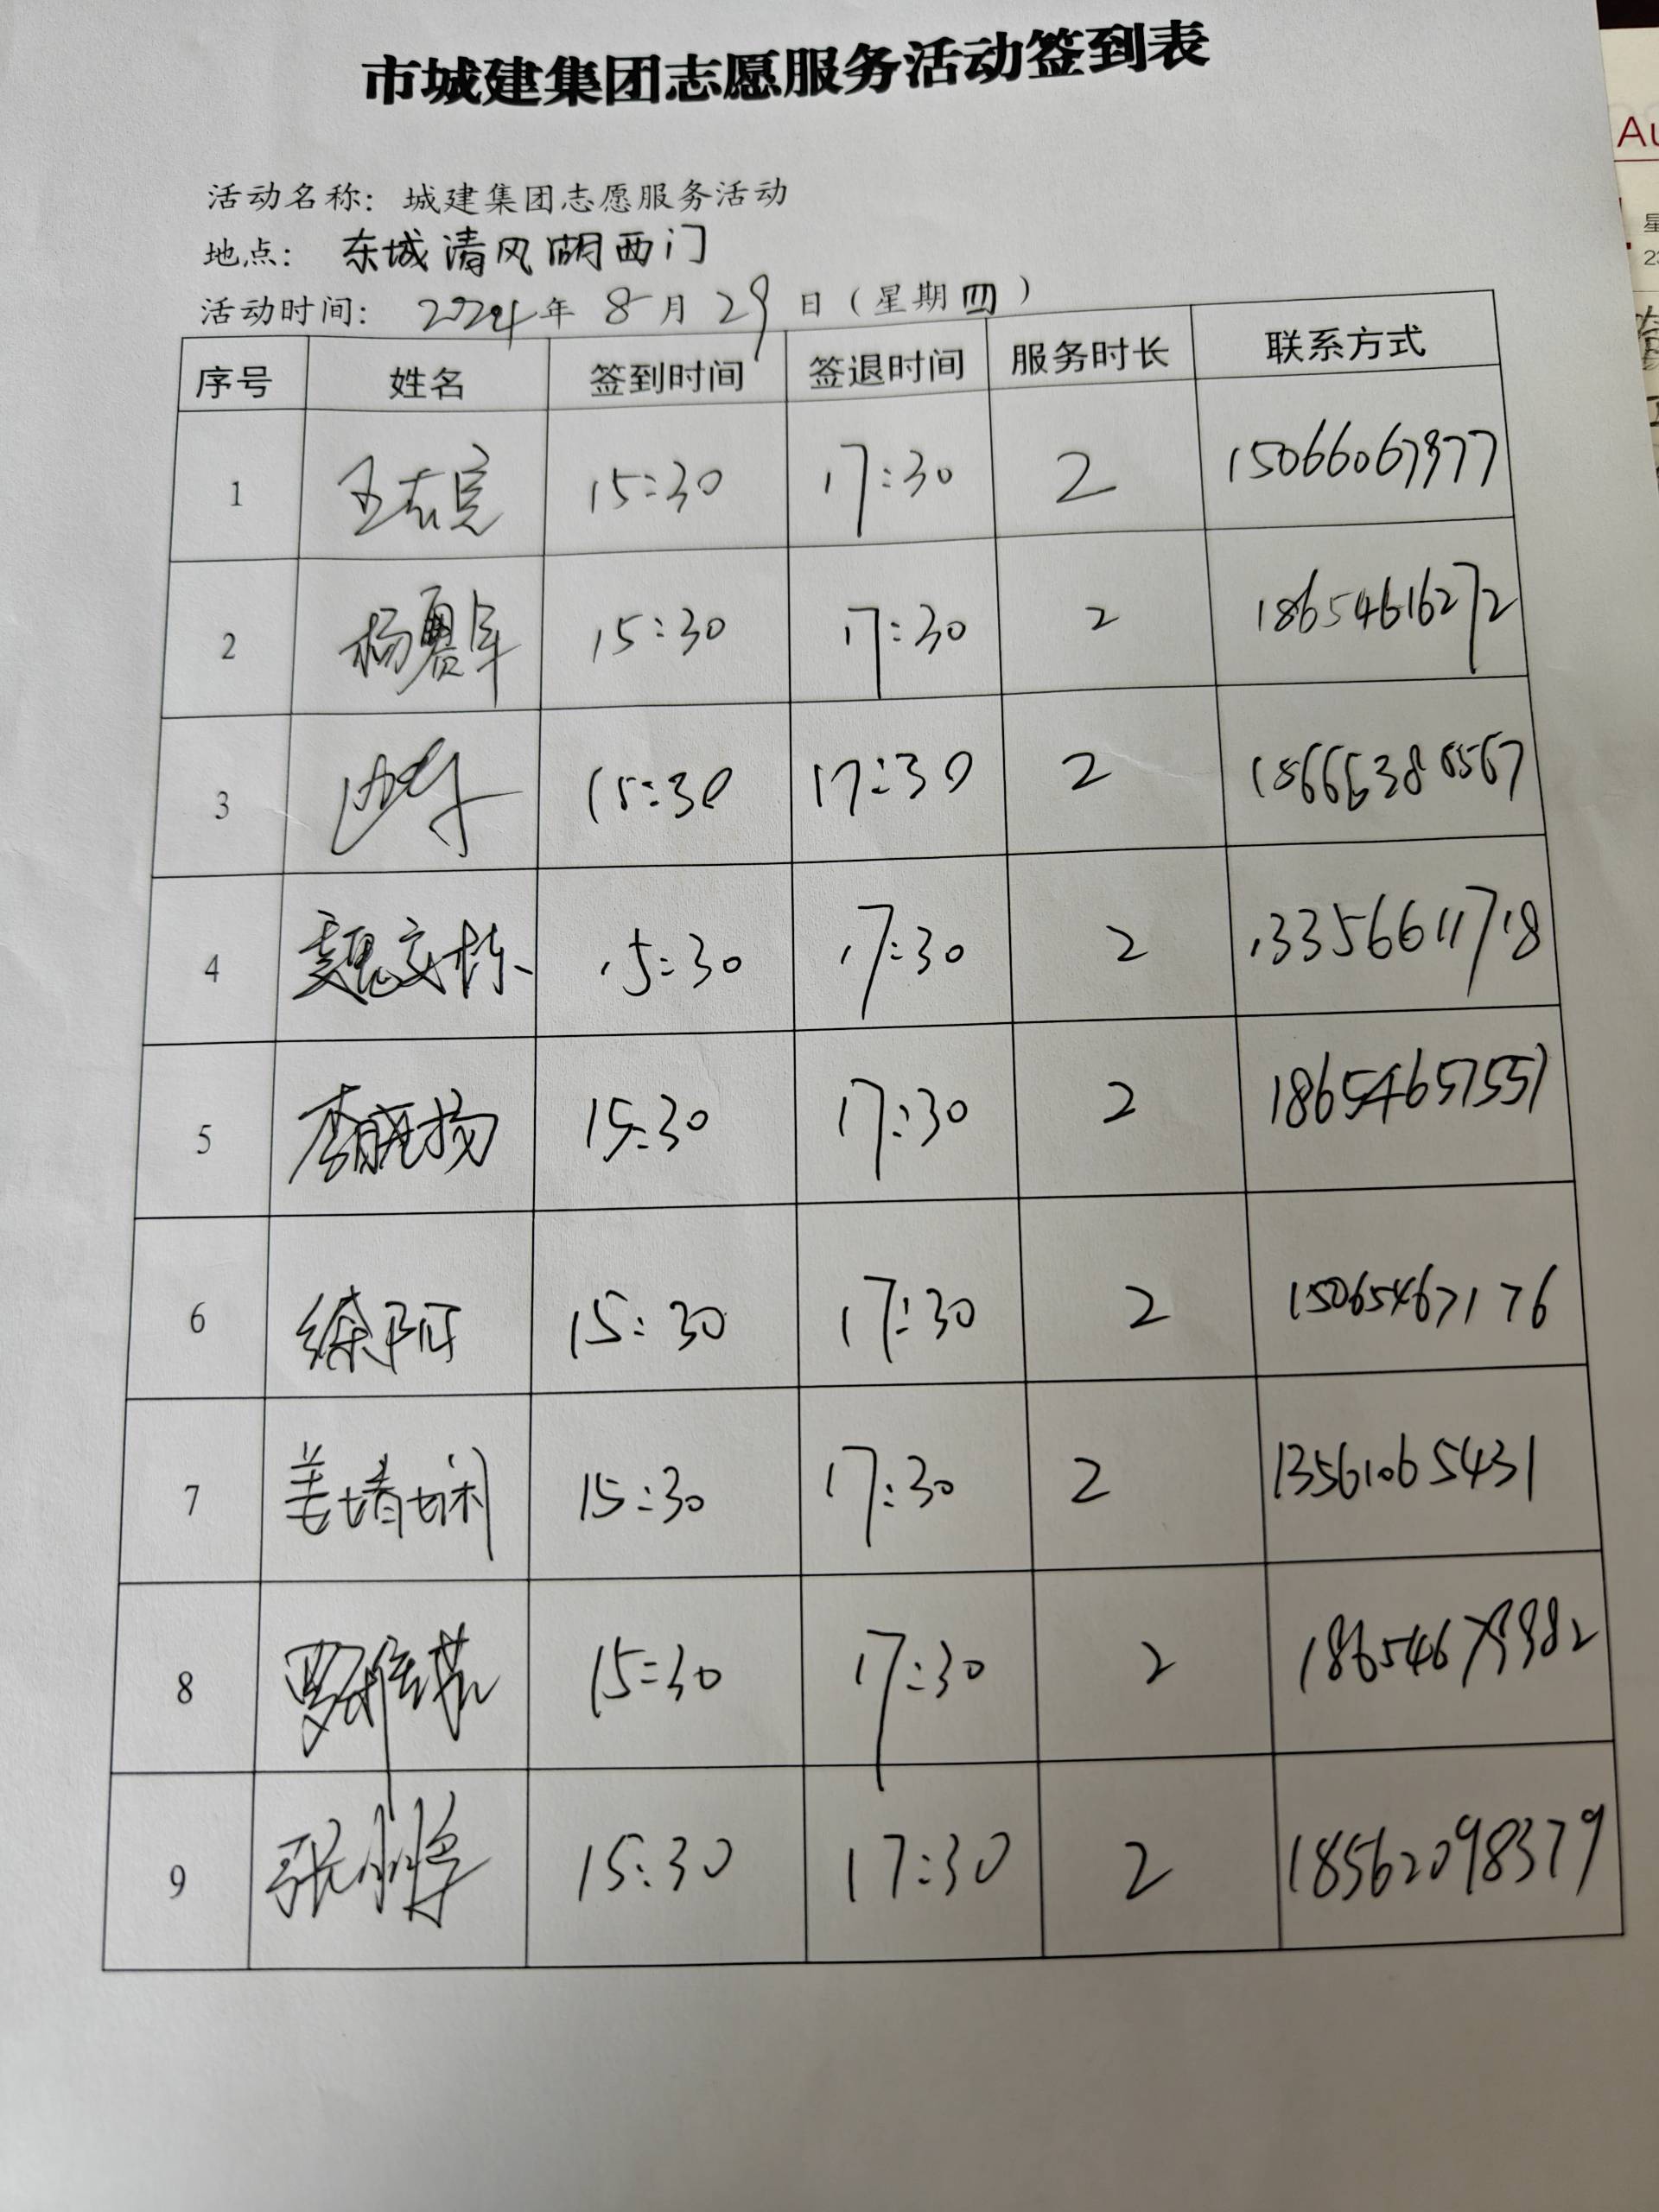 市城建集团志愿服务活动签到表
活动名称：城建集团志愿服务活动
地点：东城清风湖西门
活动时间：2024年8月29日（星期四）
序号 姓名 签到时间 签退时间 服务时长 联系方式
1 15:30 17:30 2 15066067977
2 15:30 17:30 2 18654616272
3 15:30 17:30 2
4 魏文栋 15:30 17:30 2 13356611718
5 李晓扬 15:30 17:30 2 18654657557
6 徐阿 15:30 17:30 2 15065467176
7 姜婧娴 15:30 17:30 2 13561065431
8 15:30 17:30 2 18654679982
9 15:30 17:30 2 18562098379
Au
星